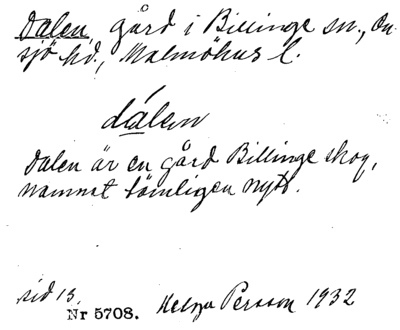 Dalen, gård i Billinge sn., On-
sjö hd., Malmöhus l.
dálen
Dalen är en gård Billinge skog,
namnet tämligen nytt.
sid 13.
Nr 5708. Helga Persson 1932